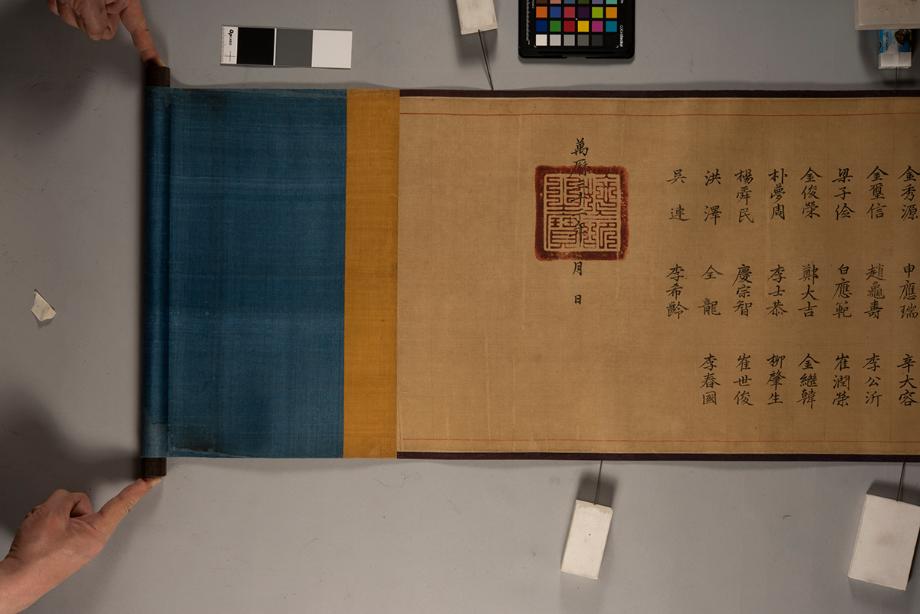 金秀源 申應瑞 辛大容
金璽信 趙龜壽 李公沂
梁子儉 白應範 崔潤榮
全俊榮 鄭大吉 金繼韓
朴夢周 李士恭 柳肇生
楊舜民 慶宗智 崔世俊
洪澤 全龍 李春國
吳連 李希齡
萬曆 年 月 日